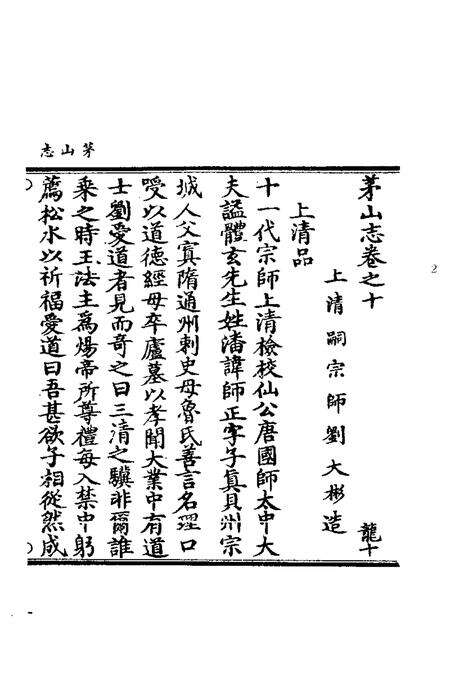 茅山志
茅山志卷之十 龍十
上清嗣宗師劉大彬造
上清品
十一代宗師上清檢校仙公唐國師太中大
夫謚體玄先生姓潘諱師正字子真貝州宗
城人父寘隋通州刺史母魯氏善言名理口
授以道德經母卒廬墓以孝聞大業中有道
士劉愛道者見而奇之曰三清之驥非爾誰
乘之時王法主為煬帝所尊禮每入禁中躬
薦松水以祈福愛道曰吾甚欲子相從然成
2